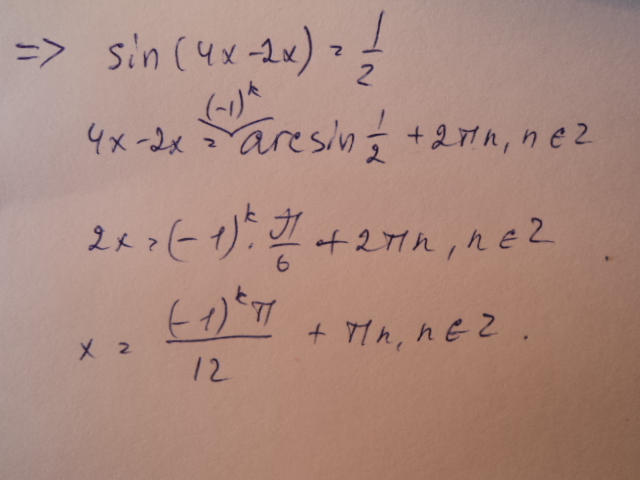 => sin(4x-2x) = 1/2
4x-2x = (-1)^k arcsin 1/2 + 2πn, n ∈ Z
2x = (-1)^k · π/6 + 2πn, n ∈ Z
x = (-1)^k π/12 + πn, n ∈ Z.